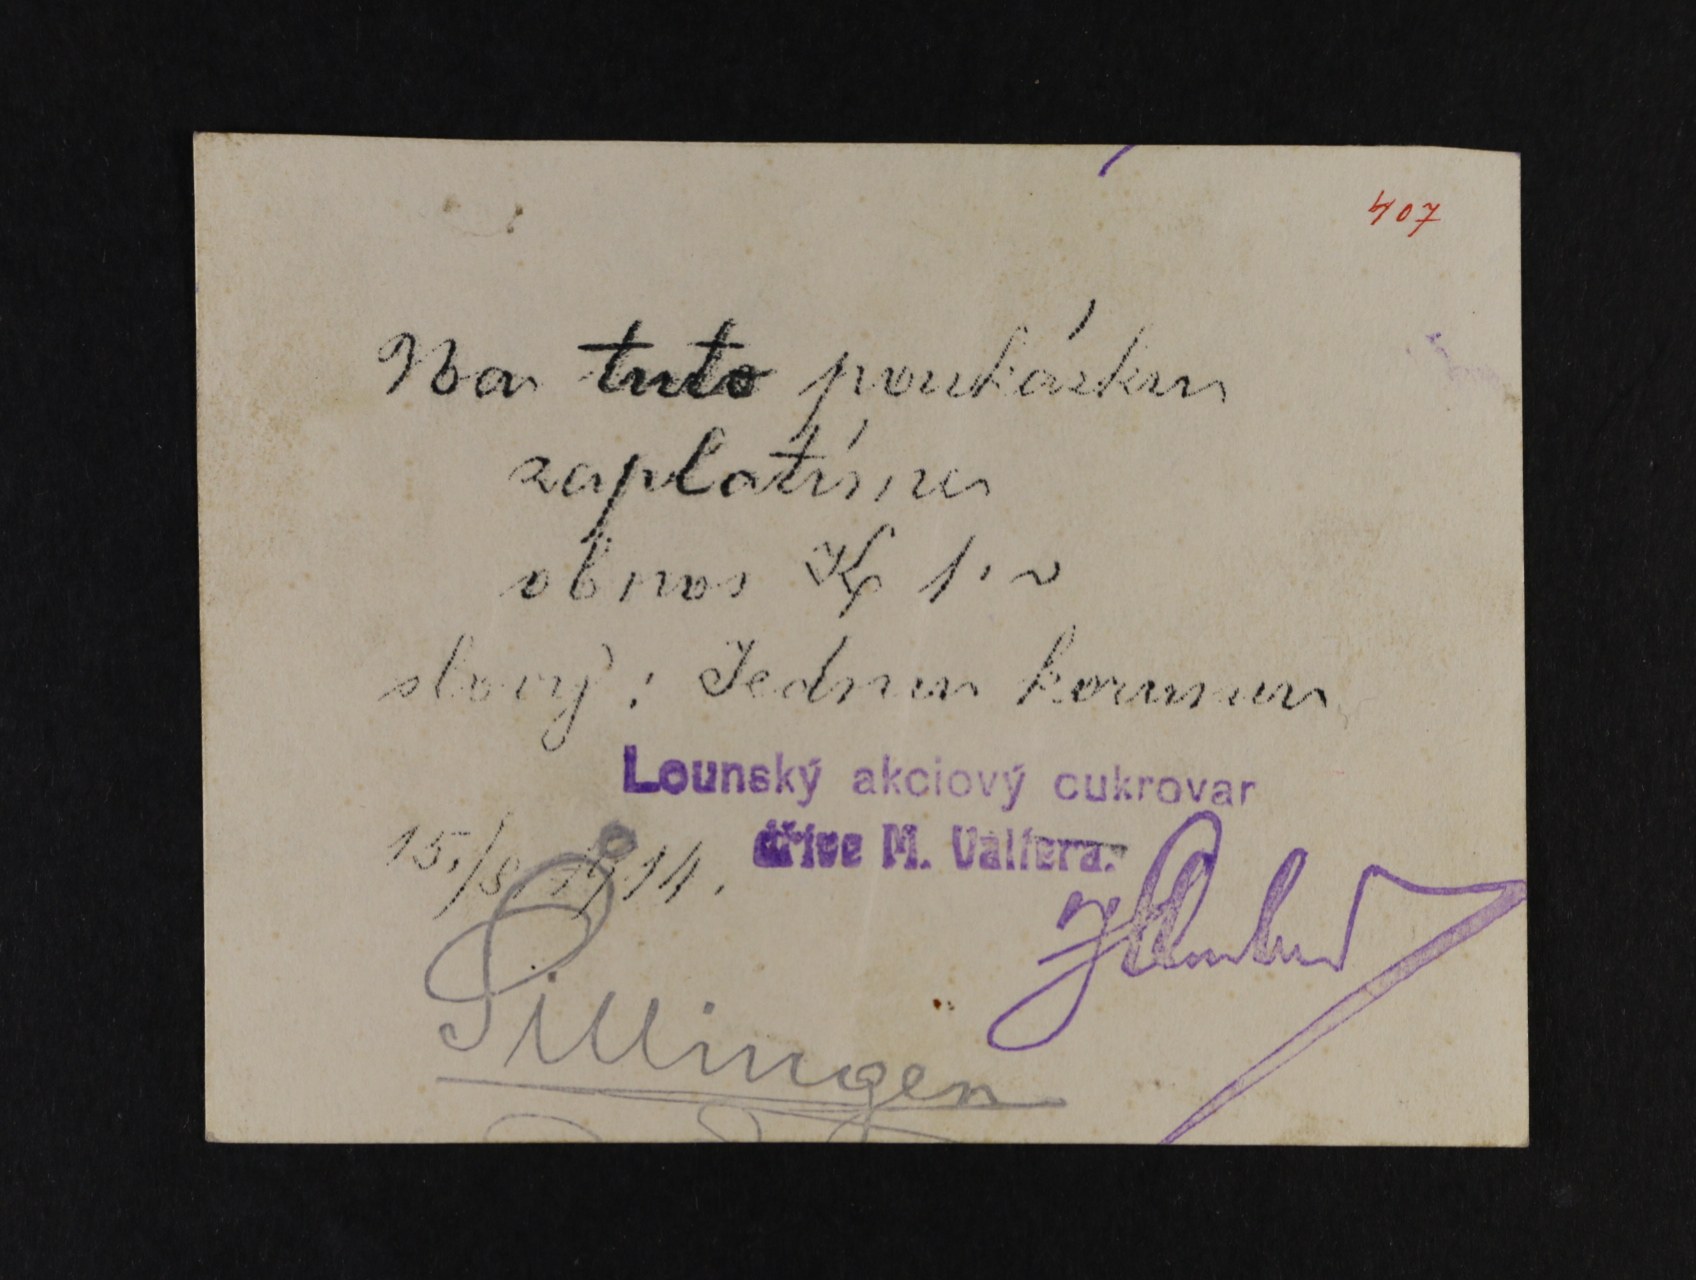 407
Na tuto poukázku
zaplatíme
obnos K 1.-
slovy: Jednu korunu
Lounský akciový cukrovar
dříve M. Valtera.
15./8. 1914.
Pillingen